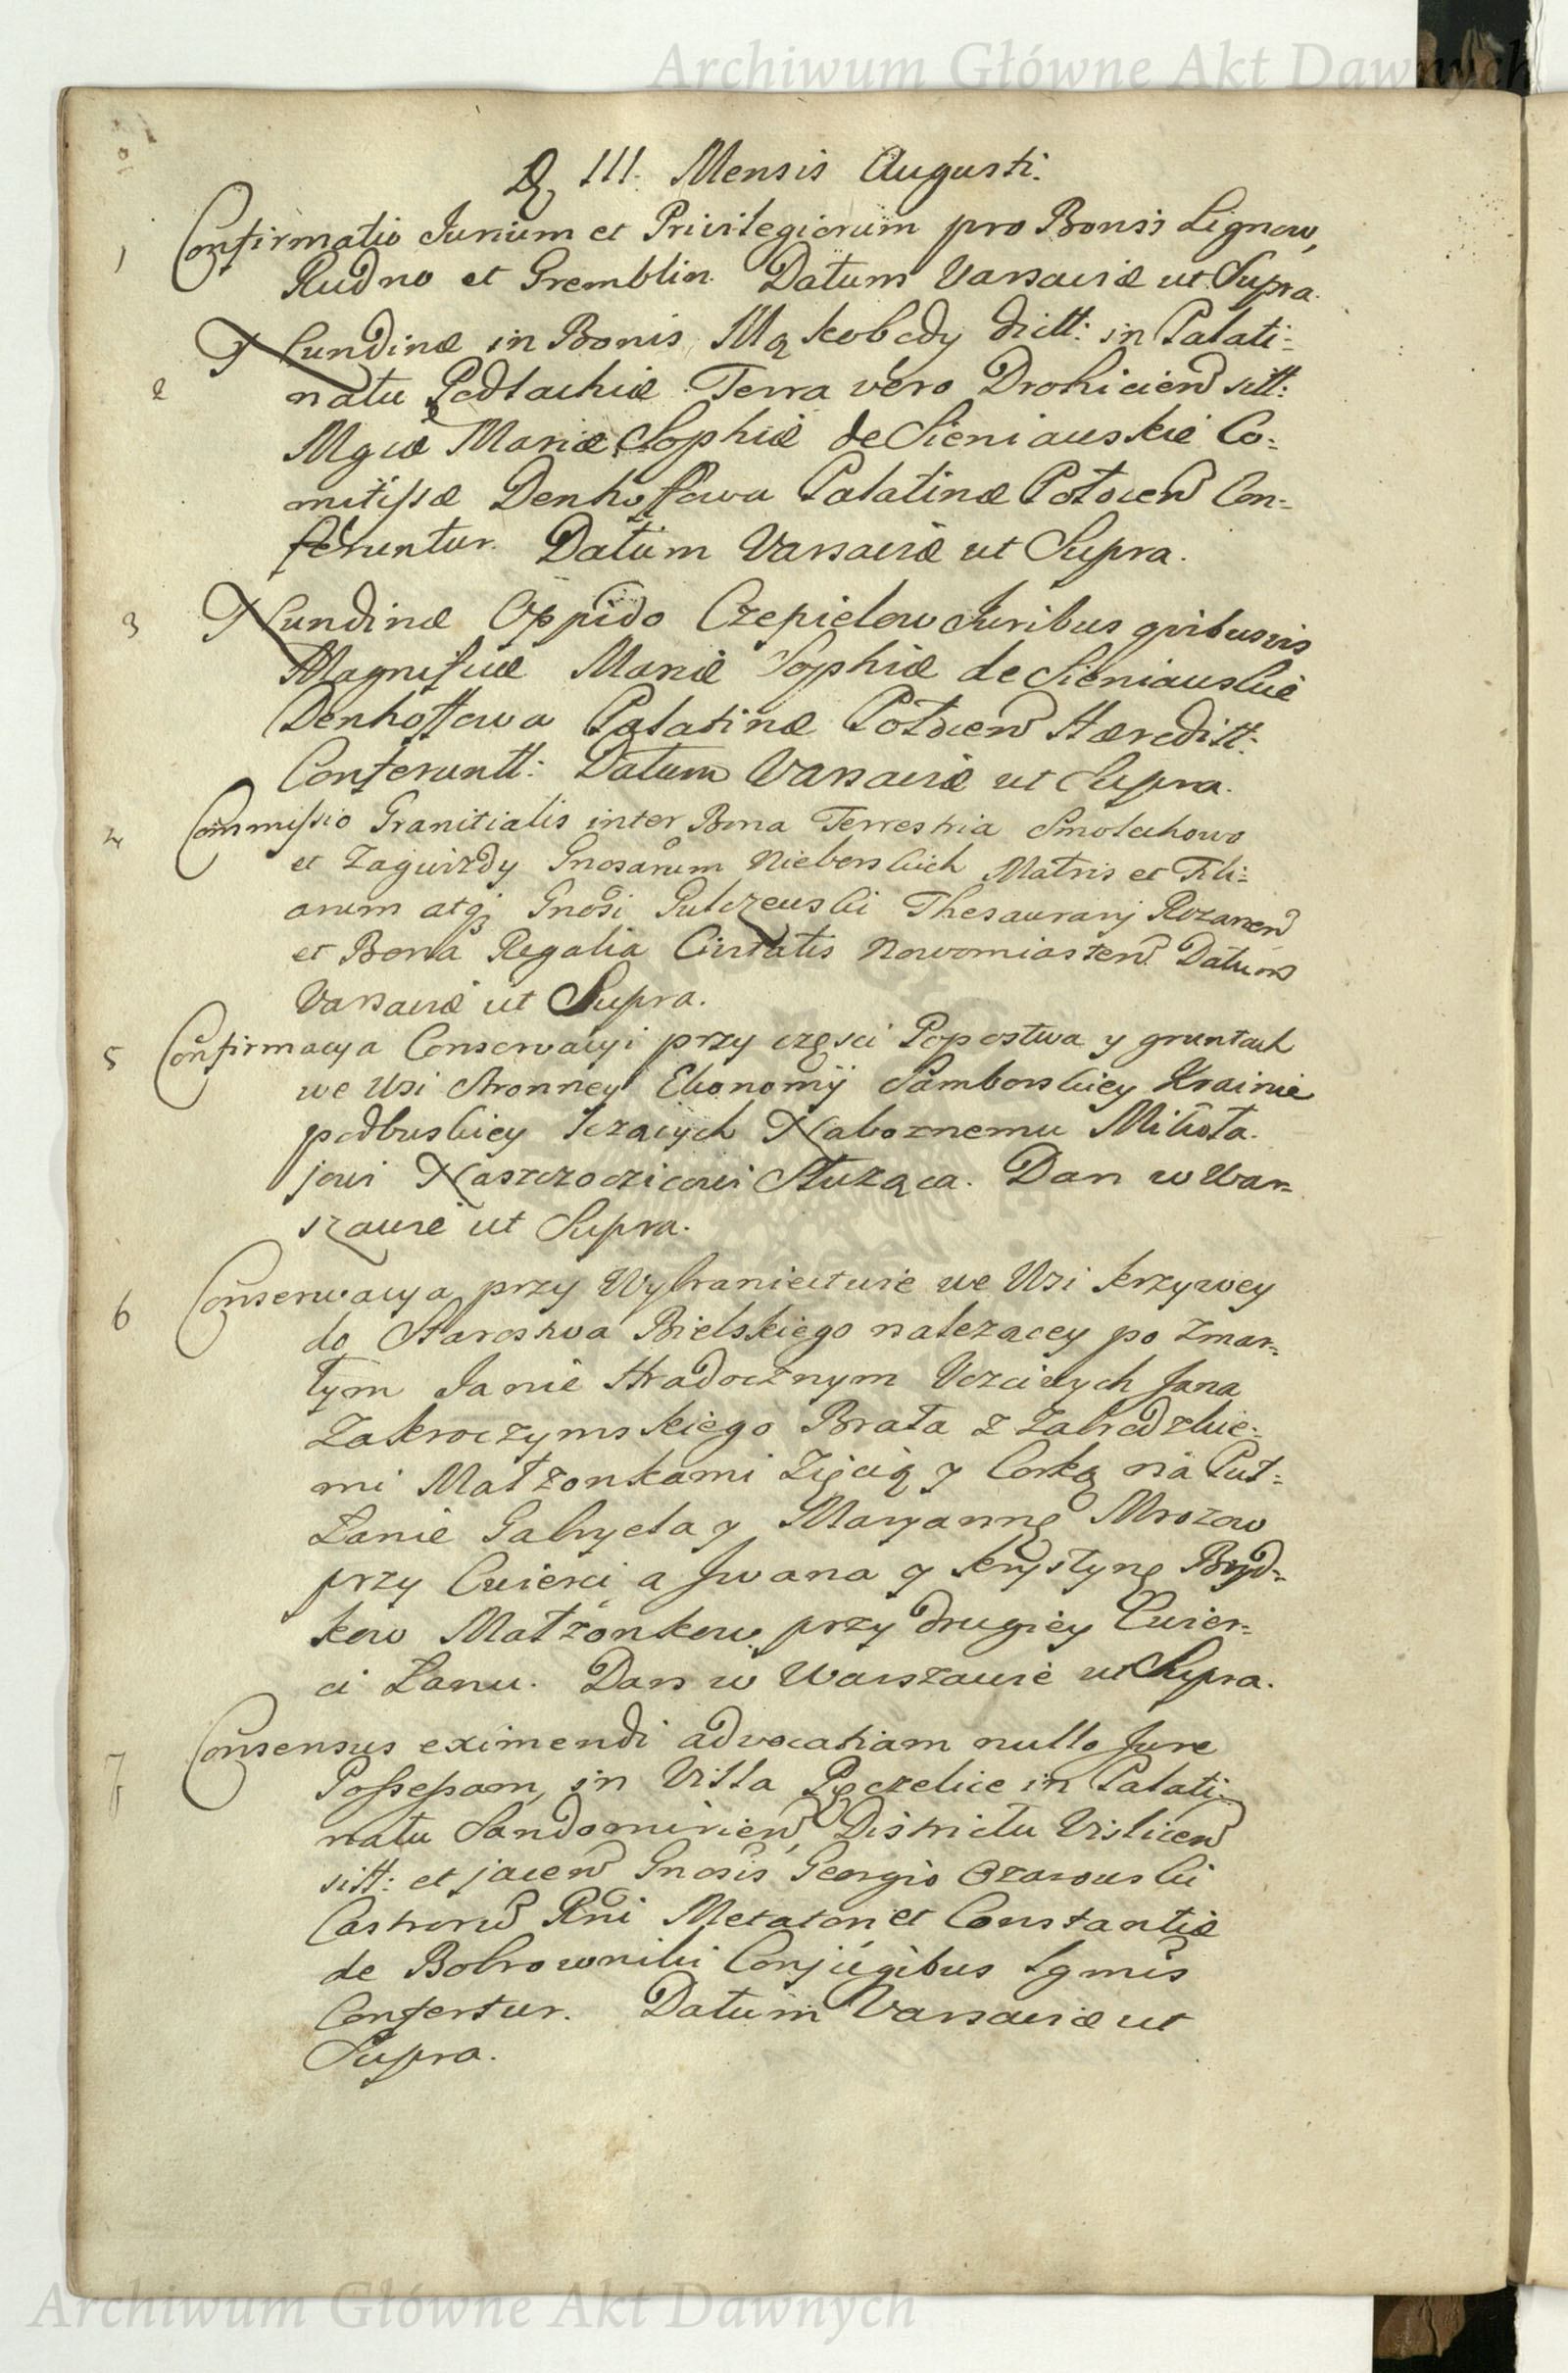 Archiwum Główne Akt Dawnych
D. III. Mensis Augusti.
1 Confirmatio Jurium et Privilegiorum pro Bonis Lignow,
Rudno et Gremblin. Datum Varsaviæ ut Supra.
2 Nundinæ in Bonis Mąkobody dictt: in Palati=
natu Podlachiæ Terra vero Drohicien sitt:
Mgcæ Mariæ Sophiæ de Sieniawskie Co=
mitissæ Denhoffowa Palatinæ Polocen Con=
feruntur. Datum Varsaviæ ut Supra.
3 Nundinæ Oppido Czepielow Juribus quibusvis
Magnificæ Mariæ Sophiæ de Sieniauskie
Denhoffowa Palatinæ Polocen Hæreditt:
Conferuntt: Datum Varsaviæ ut Supra.
4 Commissio Granitialis inter Bona Terrestria Smolechowo
et Zagwizdy Gnosarum Nieborskich Matris et Fili=
arum atq; Gnosi Gulczewski Thesaurarij Rozanen
et Bona Regalia Civitatis Nowomiasten. Datum
Varsaviæ ut Supra.
5 Confirmacya Conserwacyi przy częsci Popostwa y gruntach
we Wsi Stronney Ekonomij Samborskiey Krainie
podbuskiey lezących Naboznemu Mikoła=
jowi Naszczoczicowi Służąca. Dan w War=
szawie ut Supra.
6 Conserwacya przy Wybraniectwie we Wsi Krzywey
do Starostwa Bielskiego nalezacey po Zmar=
łym Janie Hradocznym Uczciwych Jana
Zakroczymskiego Brata z Zabrodzkie=
mi Małzonkami Zięcią y Corką na Puł=
Łanie Gabryela y Maryannę Mrozow
przy Cwierci a Jwana y Krystynę Bryd=
kow Małżonkow przy drugiey Cwier=
ci Łanu. Dan w Warszawie ut Supra.
7 Consensus eximendi advocatiam nullo Jure
Possessam, in Villa Pęczelice in Palati=
natu Sandomirien, Districtu Vislicen
sitt: et jacen Gnosis Georgio Ozarowski
Castroru Rni Metatori et Constantiæ
de Bobrowniki Conjugibus Lgmis
Confertur. Datum Varsaviæ ut
Supra.
Archiwum Główne Akt Dawnych